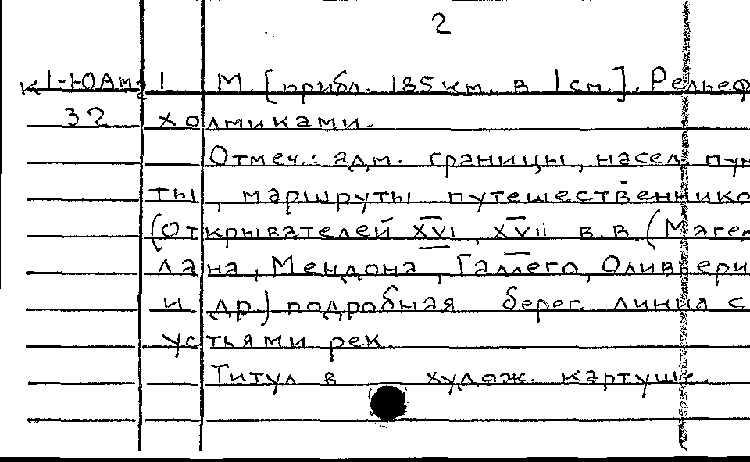 2
К1-ЮАм. 1 М [прибл. 135км. в 1см.]. Рельеф
32 холмиками.
Отмеч.: адм. границы, насел. пун
ты, маршруты путешественнико
(Открывателей XVI, XVII в.в. (Магел
лана, Мендона, Галлего, Оливери
и др.) подробная берег. линия с
устьями рек.
Титул в худож. картуше.